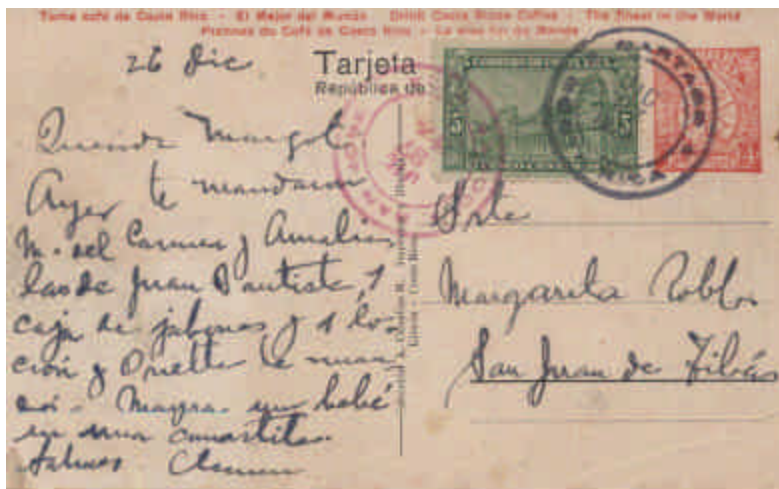 Tome café de Costa Rica - El Mejor del Mundo Drink Costa Rican Coffee - The finest in the World
du Café de Costa Rica - Le du Monde
26 Dic
Tarjeta
República de
5 5
CARTAGO
RICA
Querida Margot
Ayer te mandaron
M. del Carmen y Amalia
las de Juan Bautista, 1
caja de jabones y 1 lo-
ción y te man
Mayra un bebé
en una canastita.
Srta
Margarita Robles
San Juan de Tibás